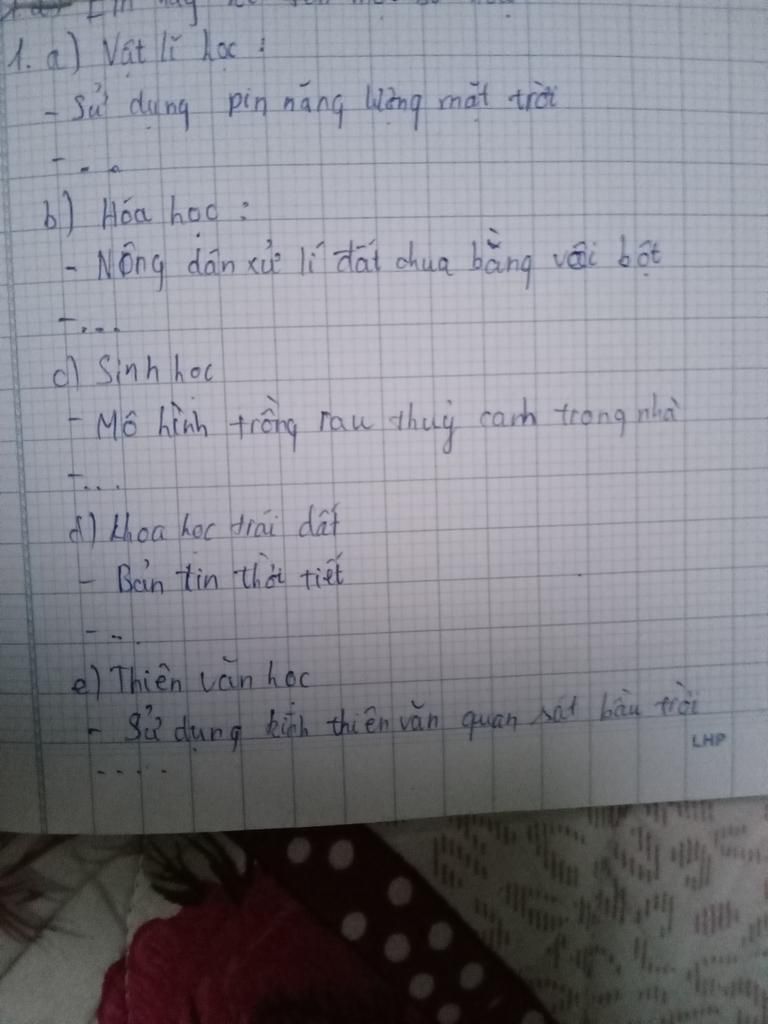 1. a) Vật lí học :
- Sử dụng pin năng lượng mặt trời
- ...
b) Hóa học :
- Nông dân xử lí đất chua bằng vôi bột
- ...
c) Sinh học
- Mô hình trồng rau thuỷ canh trong nhà
- ...
d) Khoa học trái đất
- Bản tin thời tiết
- ...
e) Thiên văn học
- Sử dụng kính thiên văn quan sát bầu trời
LHP
.....